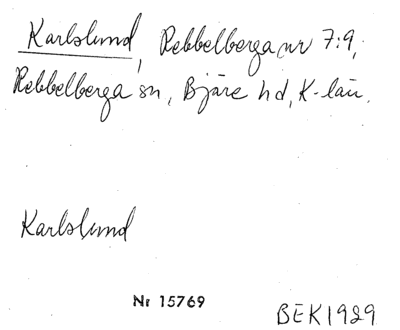 Karlslund, Rebbelberga nr 7:9,
Rebbelberga sn, Bjäre hd, K-län.
Karlslund
Nr 15769
BEK 1929